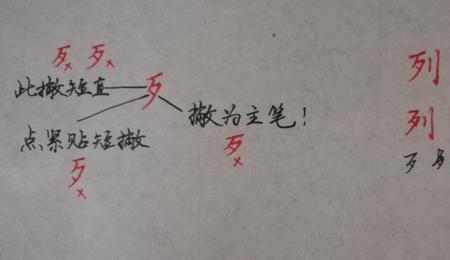 歹 歹
此撇短直 歹
点紧贴短撇
撇为主笔！
歹 歹
列
列
歹 歹